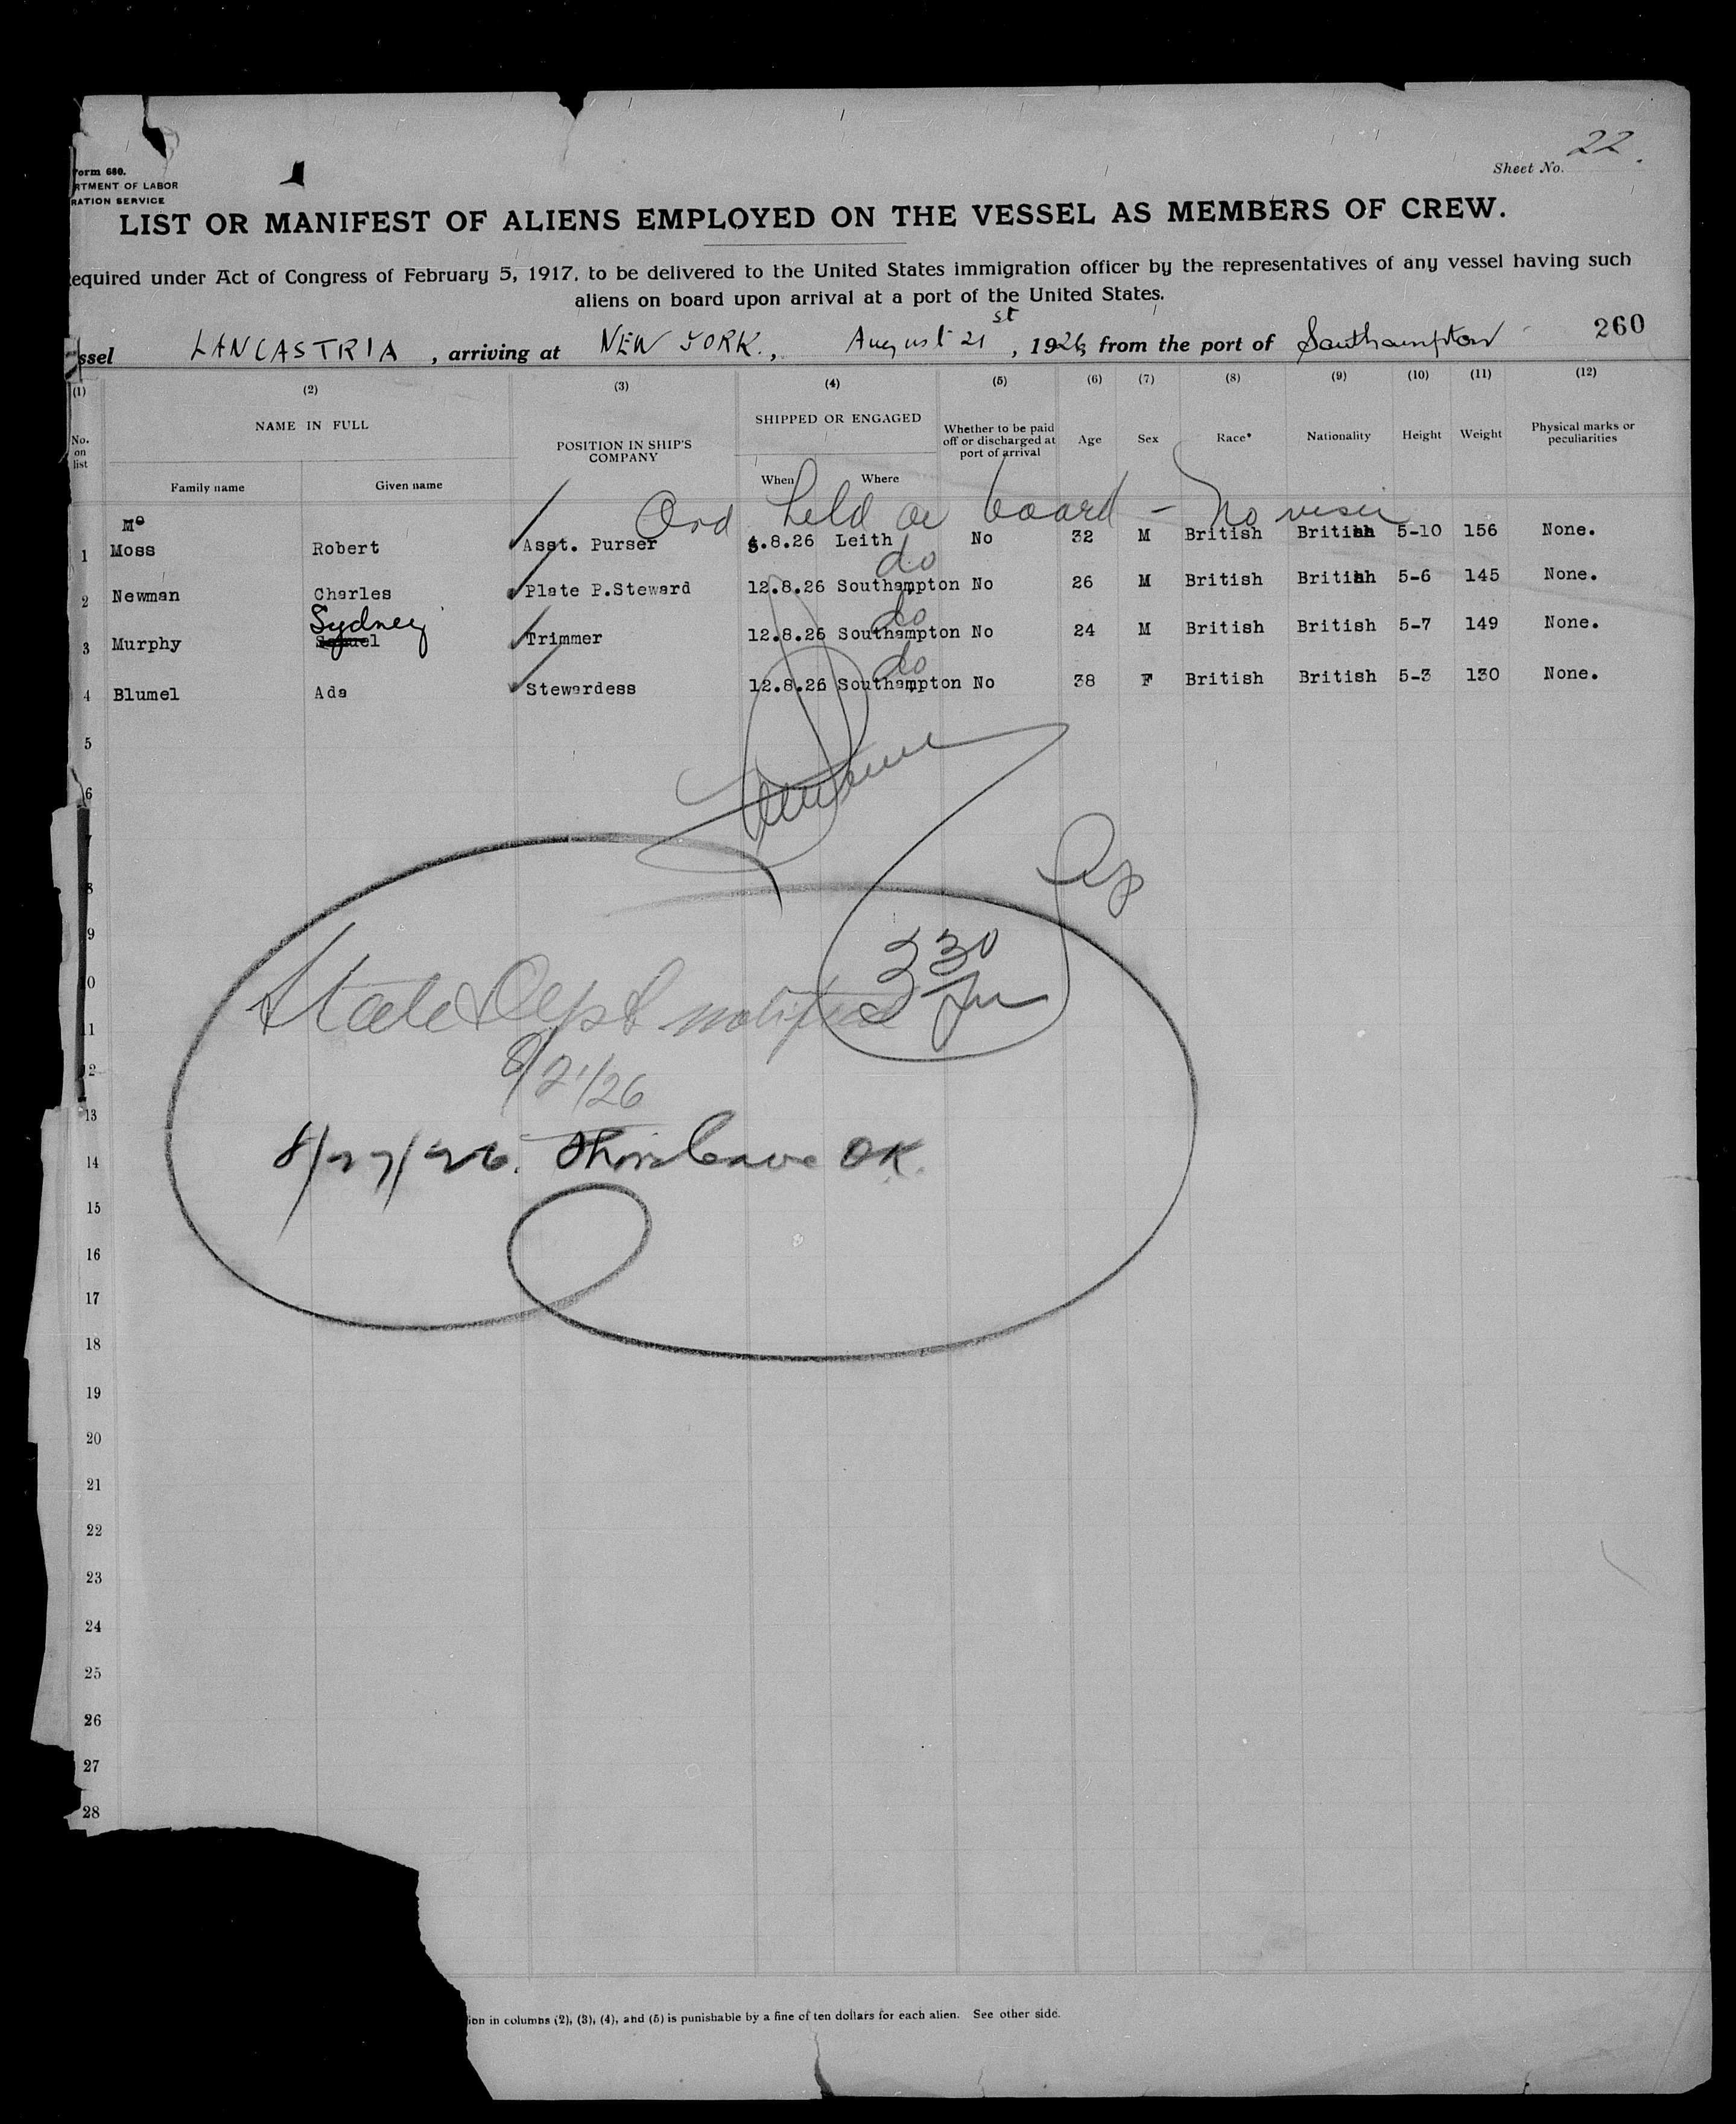 22.
Sheet No.
Form 680.
RTMENT OF LABOR
RATION SERVICE
LIST OR MANIFEST OF ALIENS EMPLOYED ON THE VESSEL AS MEMBERS OF CREW.
equired under Act of Congress of February 5, 1917, to be delivered to the United States immigration officer by the representatives of any vessel having such
aliens on board upon arrival at a port of the United States.
260
ssel LANCASTRIA , arriving at NEW YORK., August 21st , 1926, from the port of Southampton
(1) (2) (3) (4) (5) (6) (7) (8) (9) (10) (11) (12)
No. on list NAME IN FULL POSITION IN SHIP'S COMPANY SHIPPED OR ENGAGED Whether to be paid off or discharged at port of arrival Age Sex Race* Nationality Height Weight Physical marks or peculiarities
Family name Given name When Where
Ord held on board - No visa
Mo
1 Moss Robert Asst. Purser 5.8.26 Leith No 32 M British British 5-10 156 None.
do
2 Newman Charles Plate P.Steward 12.8.26 Southampton No 26 M British British 5-6 145 None.
Sydney do
3 Murphy Samuel Trimmer 12.8.26 Southampton No 24 M British British 5-7 149 None.
do
4 Blumel Ada Stewardess 12.8.26 Southampton No 38 F British British 5-3 130 None.
5
6
7
8
9
330
State Dept notified
10
11
8/21/26
12
13
8/27/26. Shore leave OK.
14
15
16
17
18
19
20
21
22
23
24
25
26
27
28
ion in columns (2), (3), (4), and (5) is punishable by a fine of ten dollars for each alien. See other side.